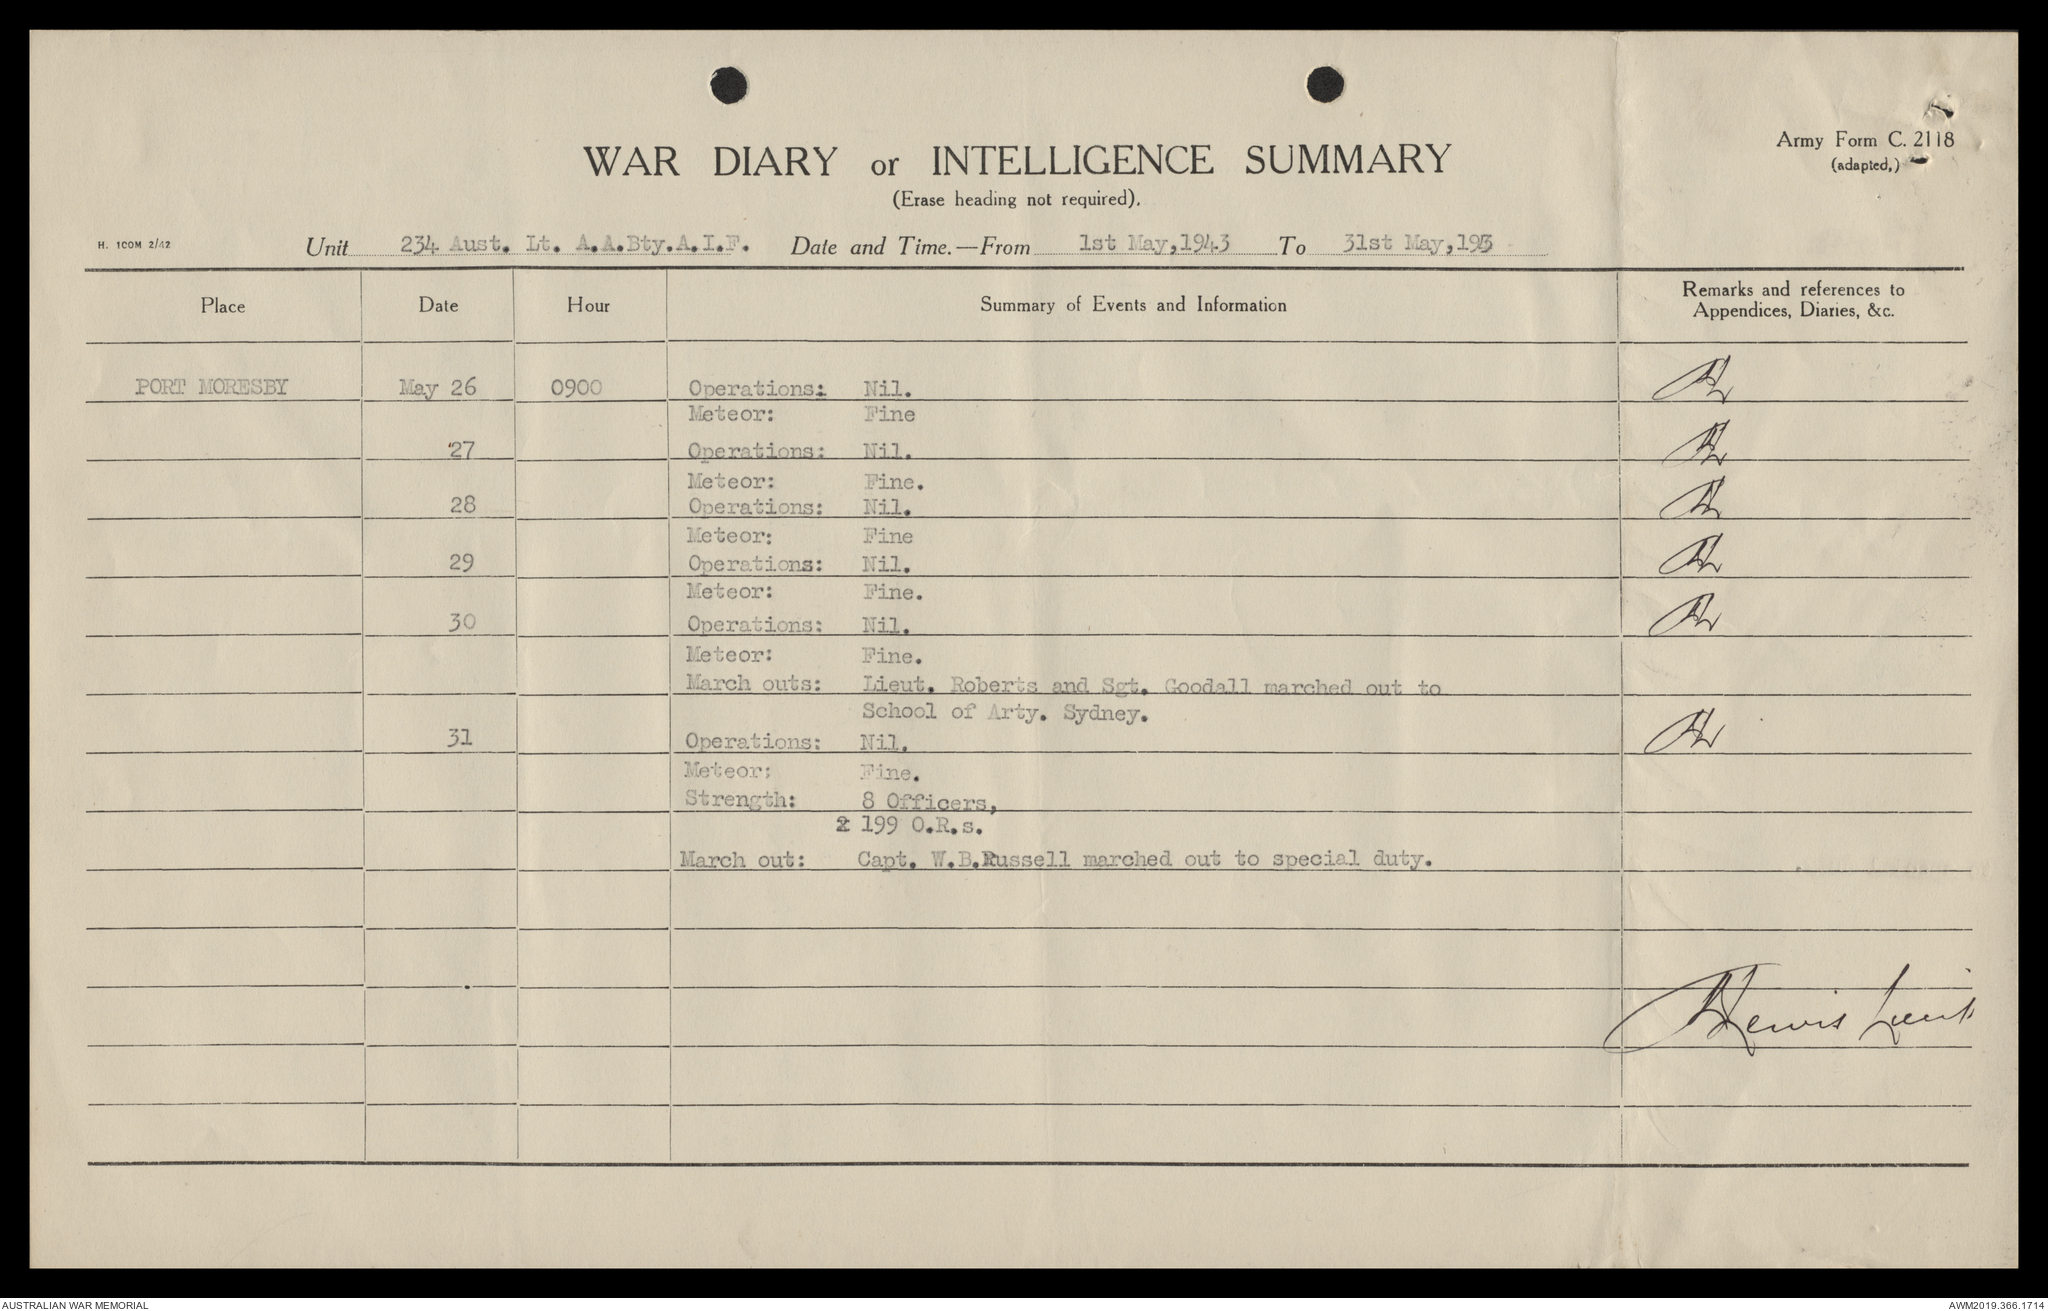 Army Form C. 2118
(adapted,)
WAR DIARY or INTELLIGENCE SUMMARY
(Erase heading not required).
H. 100M 2/42
Unit 234 Aust. Lt. A.A.Bty.A.I.F. Date and Time.—From 1st May,1943 To 31st May,193
Place Date Hour Summary of Events and Information Remarks and references to Appendices, Diaries, &c.
PORT MORESBY May 26 0900 Operations: Nil.
Meteor: Fine
27 Operations: Nil.
Meteor: Fine.
28 Operations: Nil.
Meteor: Fine
29 Operations: Nil.
Meteor: Fine.
30 Operations: Nil.
Meteor: Fine.
March outs: Lieut. Roberts and Sgt. Goodall marched out to
School of Arty. Sydney.
31 Operations: Nil.
Meteor: Fine.
Strength: 8 Officers,
199 O.R.s.
March out: Capt. W.B.Russell marched out to special duty.
Lewis Lieut
AUSTRALIAN WAR MEMORIAL
AWM2019.366.1714